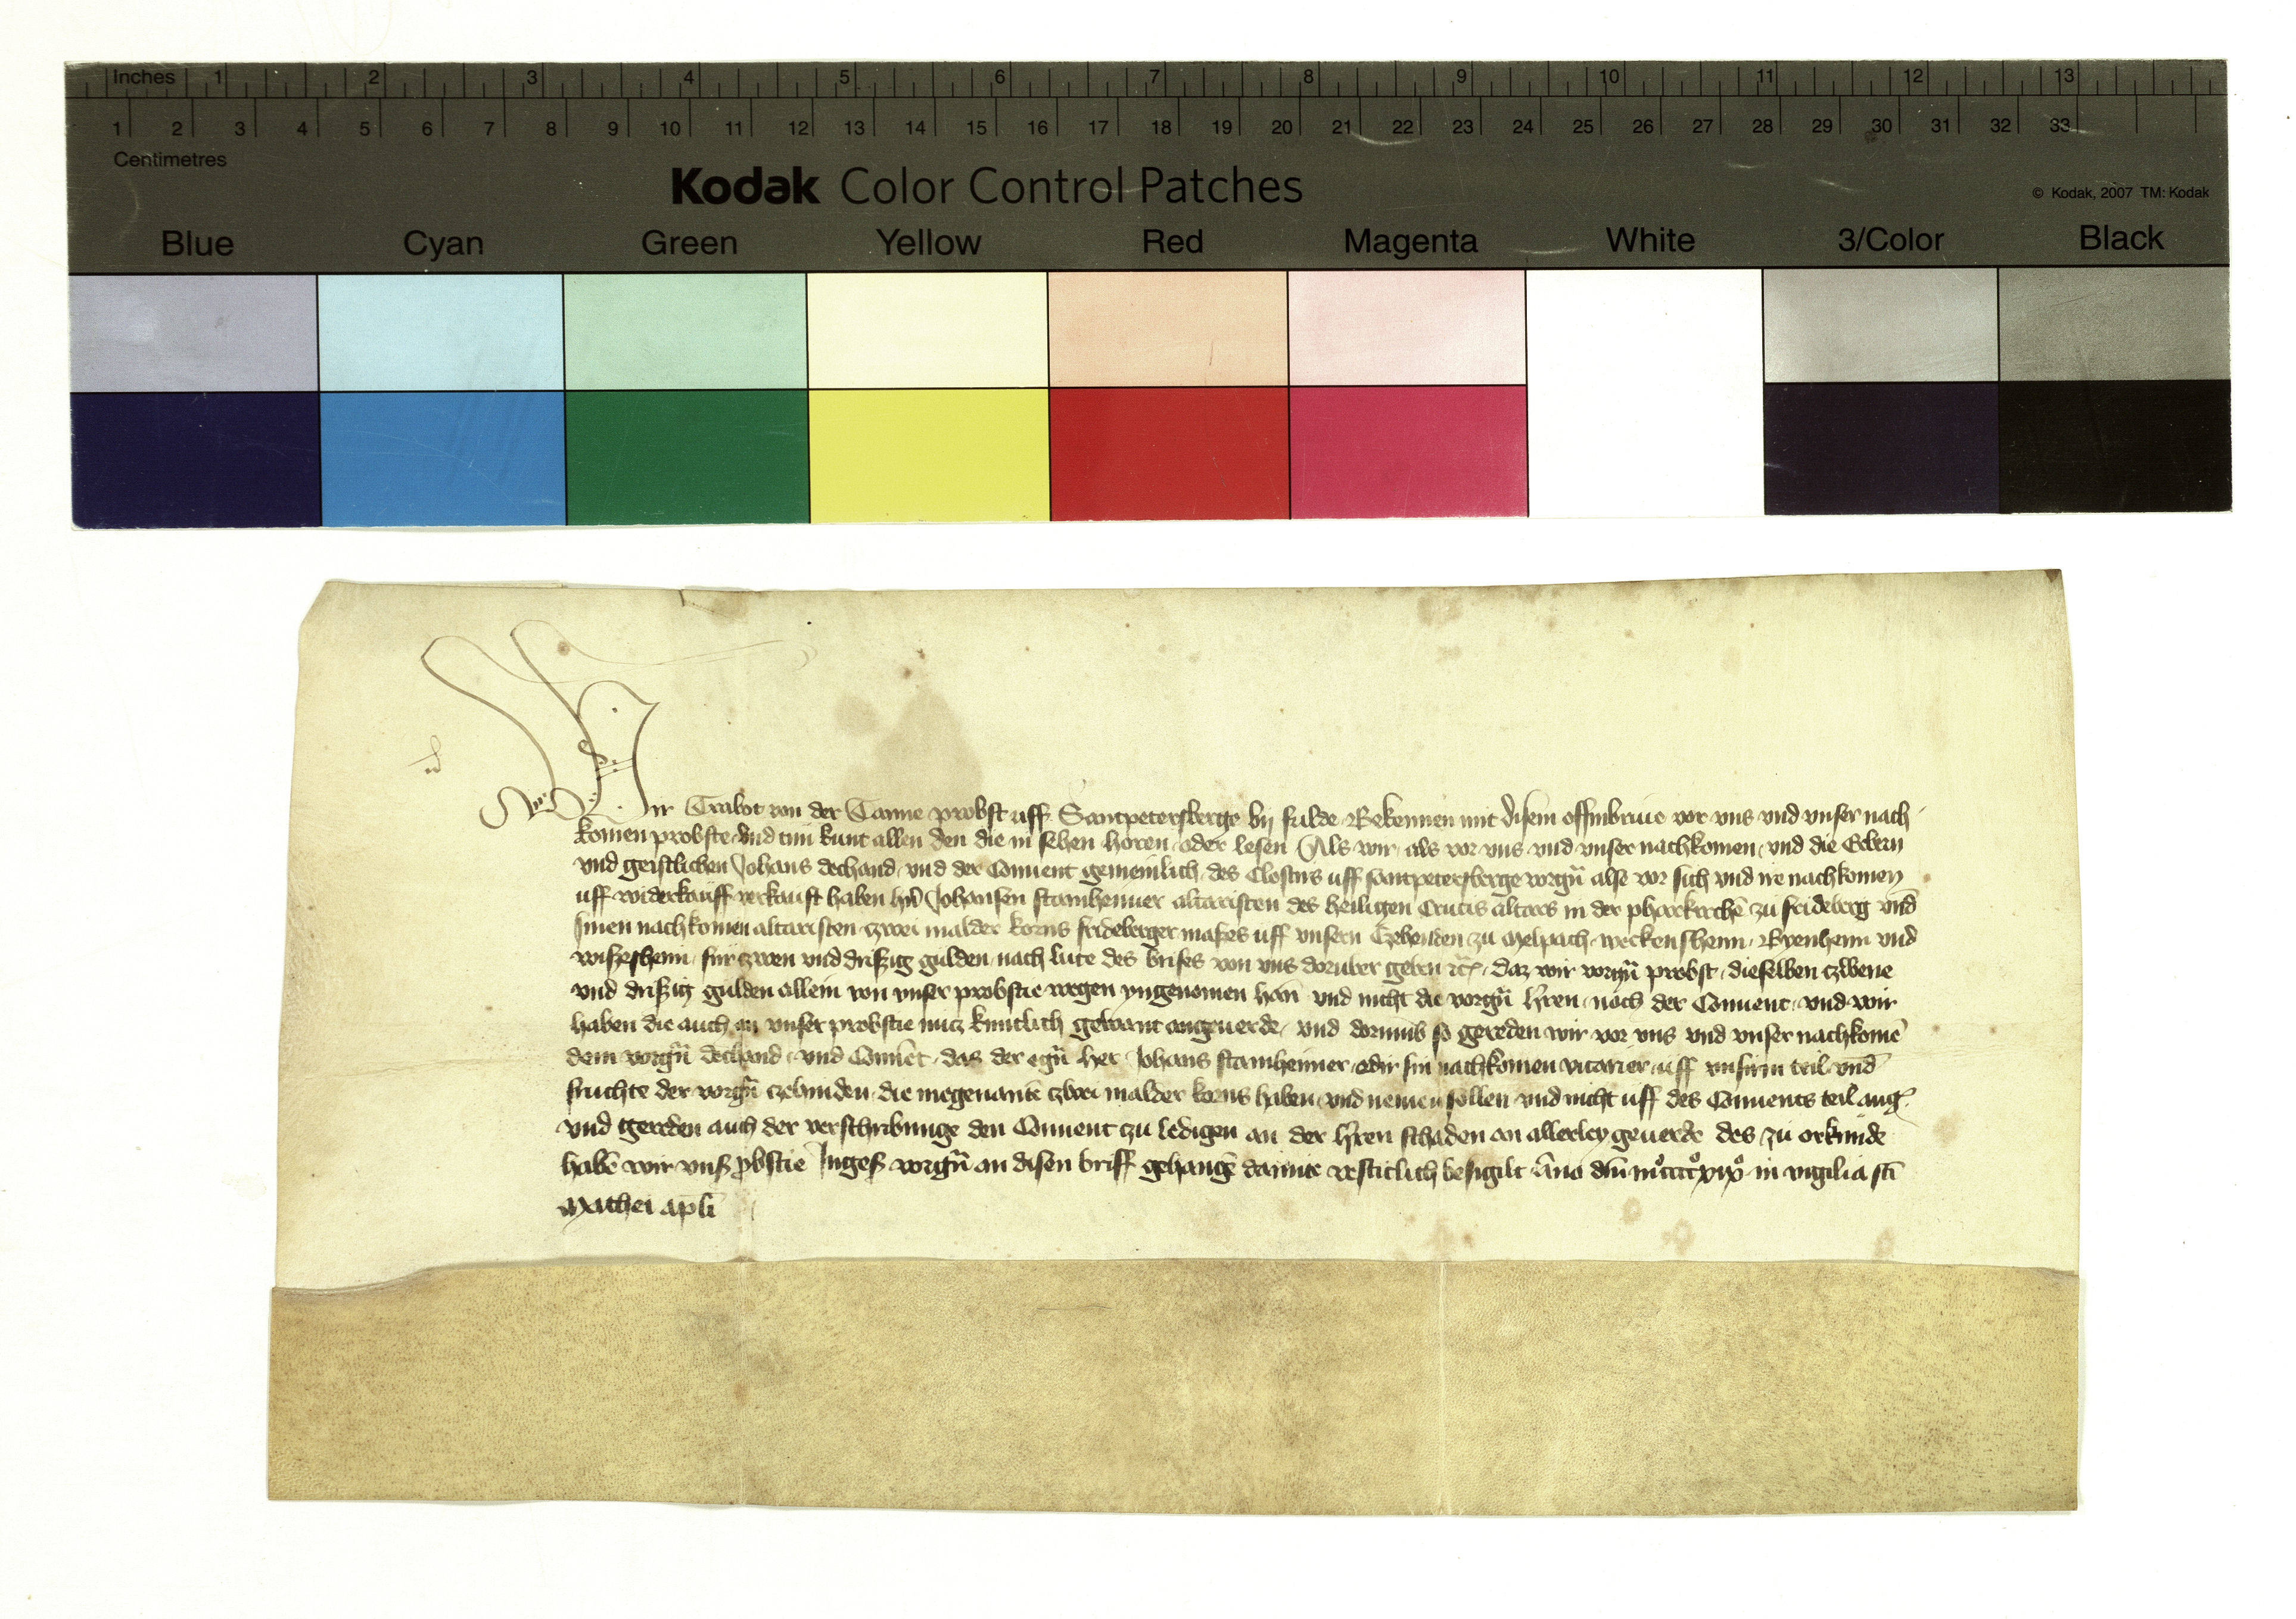 Inches 1 2 3 4 5 6 7 8 9 10 11 12 13
1 2 3 4 5 6 7 8 9 10 11 12 13 14 15 16 17 18 19 20 21 22 23 24 25 26 27 28 29 30 31 32 33
Centimetres
Kodak Color Control Patches
© Kodak, 2007 TM: Kodak
Blue Cyan Green Yellow Red Magenta White 3/Color Black
Wir von der Tanne probst uff Santpetersberge by fulde Bekennen mit disem offinbriue vor vns vnd vnser nach
komen probste vnd tun kunt allen den die in sehen horen oder lesen Als wir als vor vns vnd vnser nachkomen vnd die Erbern
vnd geistlichen Johans dechand vnd der Conuent gemeinlich des Closters uff santpetersberge vorgn̄ alse vor sich vnd ire nachkomen
uff widerkauff verkauft haben hn̄ Johansen stamheimer altaristen des heiligen Crucis altars in der pharkirchē zu frideberg vnd
sinen nachkomen altaristen zwei malder korns frideberger maßes uff vnsern Czehenden zu Melpach weckensheim vnd
fur zwen vnd drißzig gulden nach lute des brifes von vns doruber geben daz wir vorgn̄ probst dieselben czwene
vnd drißzig gulden allein von vnser probstie wegen yngenomen han vnd nicht die vorgn̄ hren noch der Conuent vnd wir
haben die auch an vnser probstie nucz kuntlich gewant angeuerde vnd dorumb so gereden wir vor vns vnd vnser nachkomē
dem vorgn̄ dechand vnd Conuēt das der egn̄ her Johans stamheimer odir sin nachkomen vicarier uff vnsirm teil vnd
fruchte der vorgn̄ czehnden die megenantē czwei malder korns haben vnd nemen sollen vnd nicht uff des Conuents teil ang
vnd gereden auch der verschribunge den Conuent zu ledigen an der hren schaden an allerley geuerde des zu orkunde
habē wir vnß pbstie Ingeß vorgn̄ an disen briff gehangē damite vesticlich besigilt Āno dn̄i in vigilia sti
Mathei apli